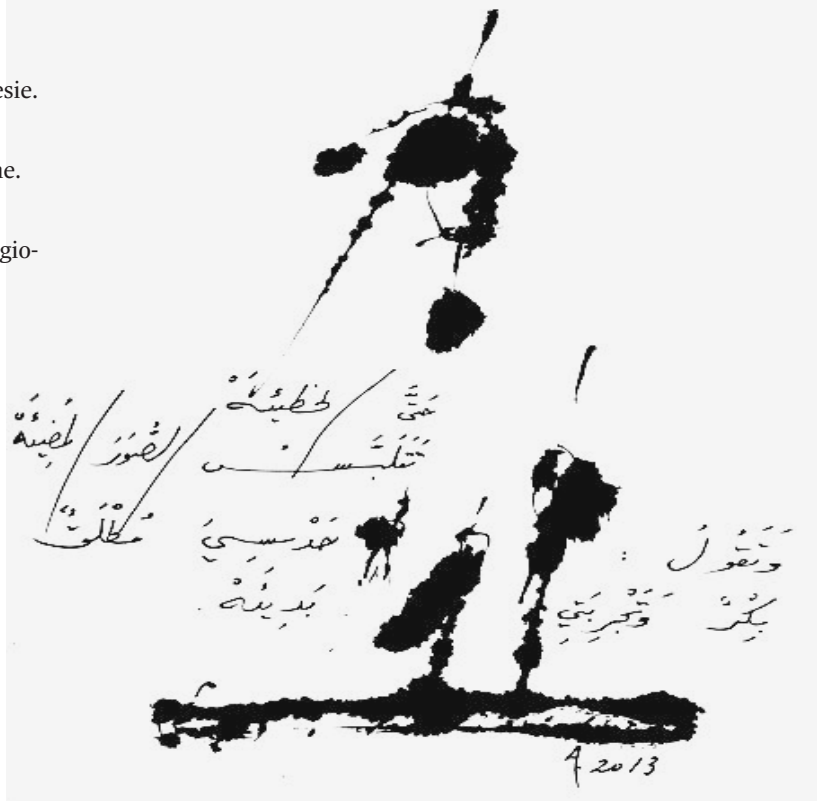 esie.
ne.
gio-
حَتَّى الخَطيئَهْ
تَتَلَبَّسُ الصُّوَرَ المُضيئَةْ
وَتَقُولُ : حَدْسِيَ مُطْلَقٌ
بِكْرٌ وَتَجْرِبَتي بَريئَهْ .
A 2013